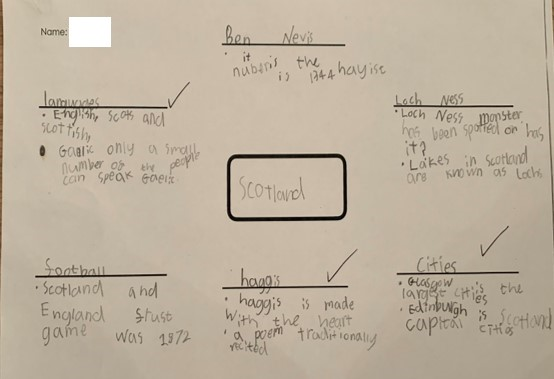 Name:
Ben Nevis
• it
nuberis the
is 1344 hayise
languages
• English, scots and
scottish,
• Gaelic only a small
number of the people
can speak Gaelic.
Loch Ness
• Loch Ness monster
has been spotted or has
it?
• Lakes in scotland
are known as Lochs
Scotland
football
• Scotland and
England
game was 1872
haggis
• haggis is made
with the heart
• a poem traditionally
recited
Cities
• Glasgow is
largest cities the
• Edinburgh
capital is Scotland
cities